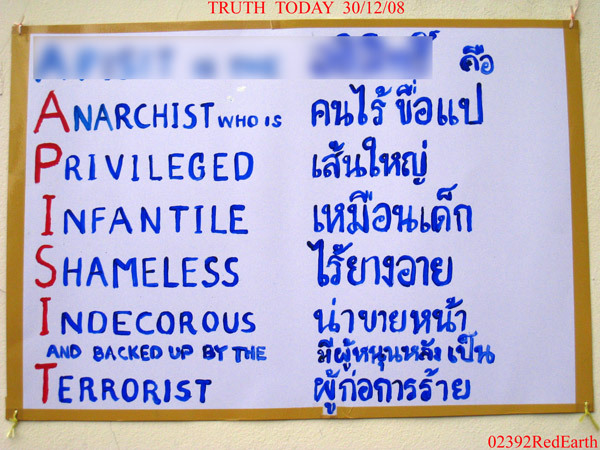 TRUTH TODAY 30/12/08
คือ
ANARCHIST WHO IS คนไร้ ขื่อแป
PRIVILEGED เส้นใหญ่
INFANTILE เหมือนเด็ก
SHAMELESS ไร้ยางอาย
INDECOROUS น่าขายหน้า
AND BACKED UP BY THE มีผู้หนุนหลัง เป็น
TERRORIST ผู้ก่อการร้าย
02392RedEarth